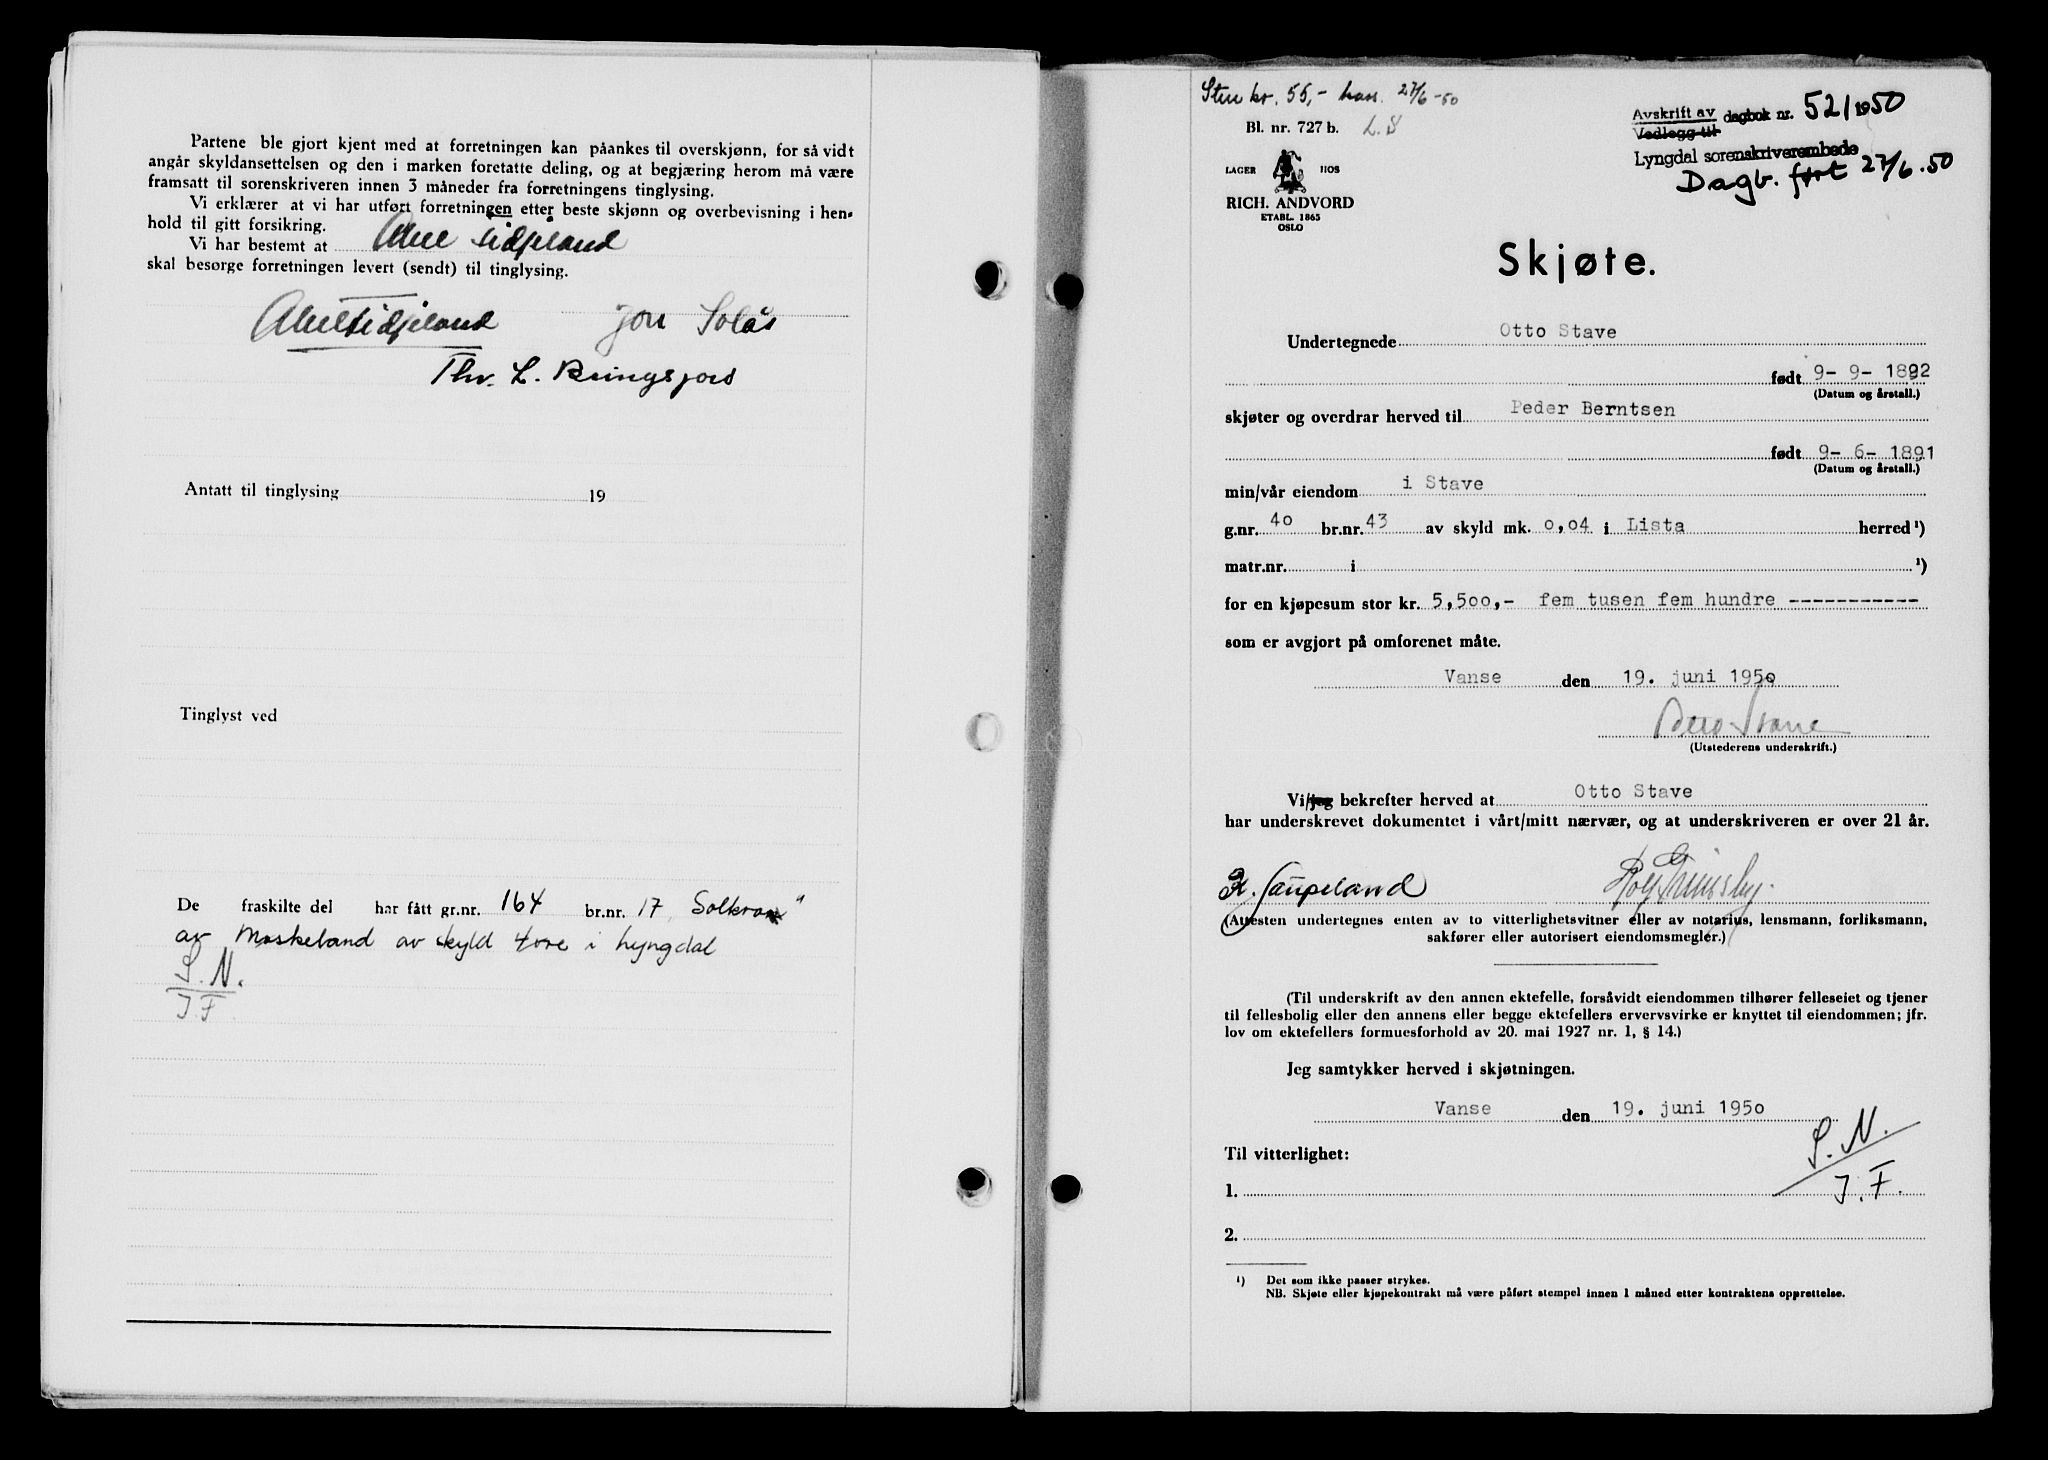 Partene ble gjort kjent med at forretningen kan påankes til overskjønn, for så vidt
angår skyldansettelsen og den i marken foretatte deling, og at begjæring herom må være
framsatt til sorenskriveren innen 3 måneder fra forretningens tinglysing.
Vi erklærer at vi har utført forretningen etter beste skjønn og overbevisning i hen-
hold til gitt forsikring.
Vi har bestemt at Abel Lidjeland
skal besørge forretningen levert (sendt) til tinglysing.
Abel Lidjeland Jon Solås
Thv. L. Bringsjord
Antatt til tinglysing 19
Tinglyst ved
De fraskilte del har fått gr.nr. 164 br.nr. 17
av skyld 4 øre i Lyngdal
S. N.
J. F.
kr. 55,- 27/6-50
Bl. nr. 727 b. L.S
Avskrift av dagbok nr. 521 1950
Vedlegg til
Lyngdal sorenskriverembede
Dagb. ført 27/6.50
LAGER HOS
RICH. ANDVORD
ETABL. 1865
OSLO
Skjøte.
Undertegnede Otto Stave
født 9- 9- 1892
(Datum og årstall.)
skjøter og overdrar herved til Peder Berntsen
født 9- 6- 1891
(Datum og årstall.)
min/vår eiendom i Stave
g.nr. 40 br.nr. 43 av skyld mk. 0,04 i Lista herred ¹)
matr.nr. i ¹)
for en kjøpesum stor kr. 5,500,- fem tusen fem hundre -----------
som er avgjort på omforenet måte.
Vanse den 19. juni 1950
Otto Stave
(Utstederens underskrift.)
Vi/jeg bekrefter herved at Otto Stave
har underskrevet dokumentet i vårt/mitt nærvær, og at underskriveren er over 21 år.
(Attesten undertegnes enten av to vitterlighetsvitner eller av notarius, lensmann, forliksmann,
sakfører eller autorisert eiendomsmegler.)
(Til underskrift av den annen ektefelle, forsåvidt eiendommen tilhører felleseiet og tjener
til fellesbolig eller den annens eller begge ektefellers ervervsvirke er knyttet til eiendommen; jfr.
lov om ektefellers formuesforhold av 20. mai 1927 nr. 1, § 14.)
Jeg samtykker herved i skjøtningen.
Vanse den 19. juni 1950
S. N.
J. F.
Til vitterlighet:
1.
2.
¹) Det som ikke passer strykes.
NB. Skjøte eller kjøpekontrakt må være påført stempel innen 1 måned etter kontraktens opprettelse.